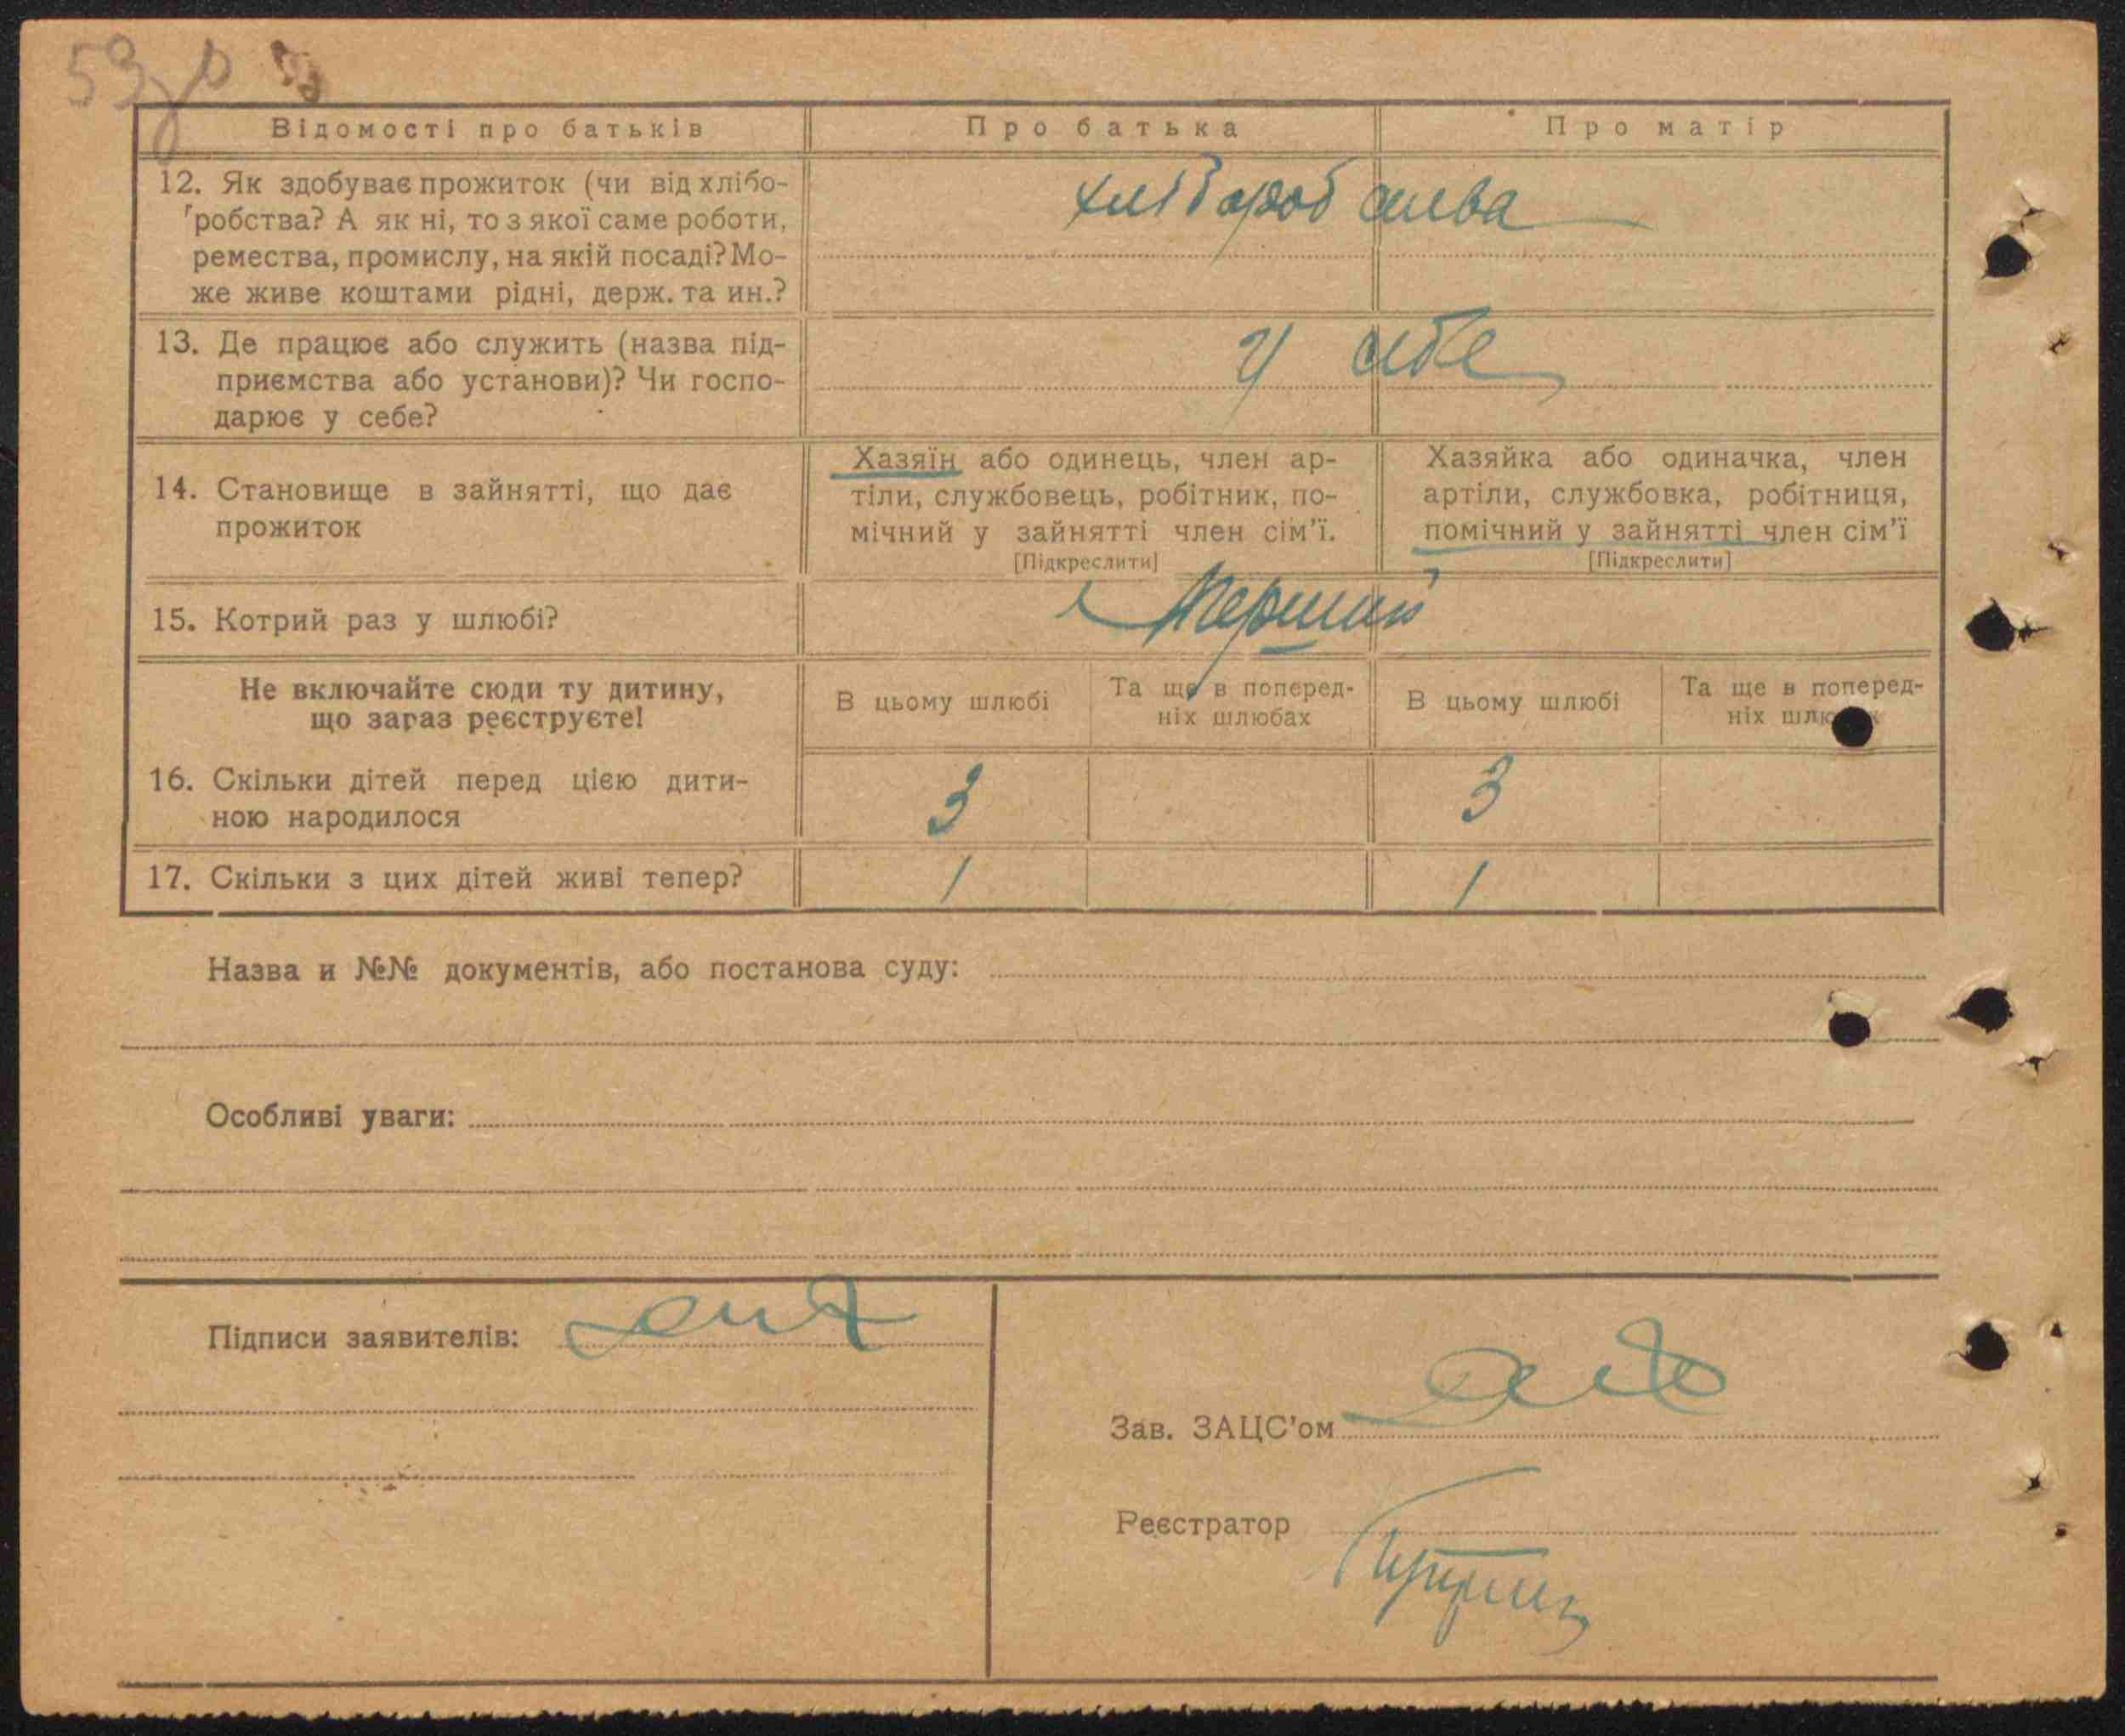 53
Відомості про батьків
Про батька
Про матір
12. Як здобуває прожиток (чи від хлібо-
робства? А як ні, то з якої саме роботи,
ремества, промислу, на якій посаді? Мо-
же живе коштами рідні, держ. та ин.?
хліборобства
13. Де працює або служить (назва під-
приємства або установи)? Чи госпо-
дарює у себе?
у себе
14. Становище в зайнятті, що дає
прожиток
Хазяїн або одинець, член ар-
тіли, службовець, робітник, по-
мічний у зайнятті член сім'ї.
[Підкреслити]
Хазяйка або одиначка, член
артіли, службовка, робітниця,
помічний у зайнятті член сім'ї
[Підкреслити]
15. Котрий раз у шлюбі?
Перший
Не включайте сюди ту дитину,
що зараз реєструєте!
В цьому шлюбі
Та ще в поперед-
ніх шлюбах
В цьому шлюбі
Та ще в поперед-
ніх
16. Скільки дітей перед цією дити-
ною народилося
3
3
17. Скільки з цих дітей живі тепер?
1
1
Назва и №№ документів, або постанова суду:
Особливі уваги:
Підписи заявителів:
Зав. ЗАЦС'ом
Реєстратор